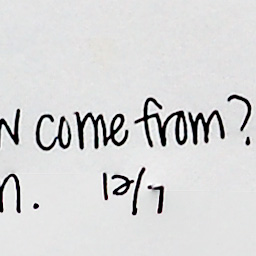 come from?
12/7